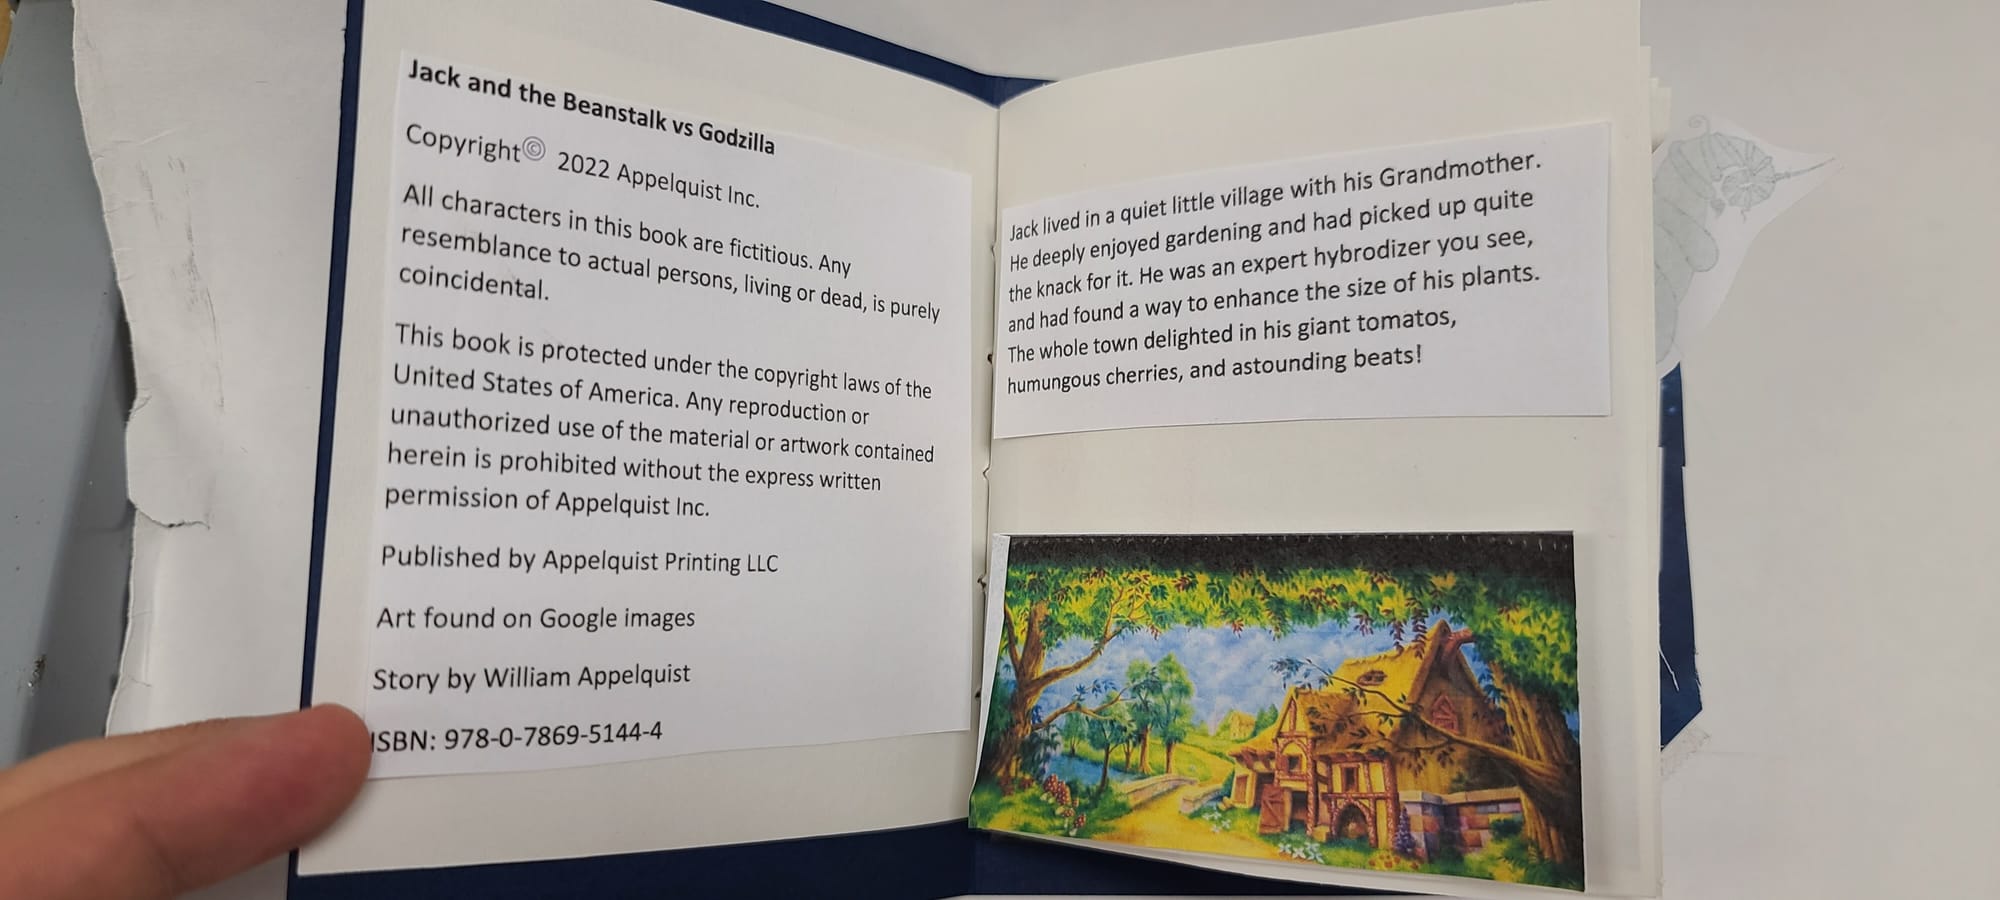 Jack and the Beanstalk vs Godzilla
Copyright© 2022 Appelquist Inc.
All characters in this book are fictitious. Any
resemblance to actual persons, living or dead, is purely
coincidental.
This book is protected under the copyright laws of the
United States of America. Any reproduction or
unauthorized use of the material or artwork contained
herein is prohibited without the express written
permission of Appelquist Inc.
Published by Appelquist Printing LLC
Art found on Google images
Story by William Appelquist
ISBN: 978-0-7869-5144-4
Jack lived in a quiet little village with his Grandmother.
He deeply enjoyed gardening and had picked up quite
the knack for it. He was an expert hybrodizer you see,
and had found a way to enhance the size of his plants.
The whole town delighted in his giant tomatos,
humungous cherries, and astounding beats!